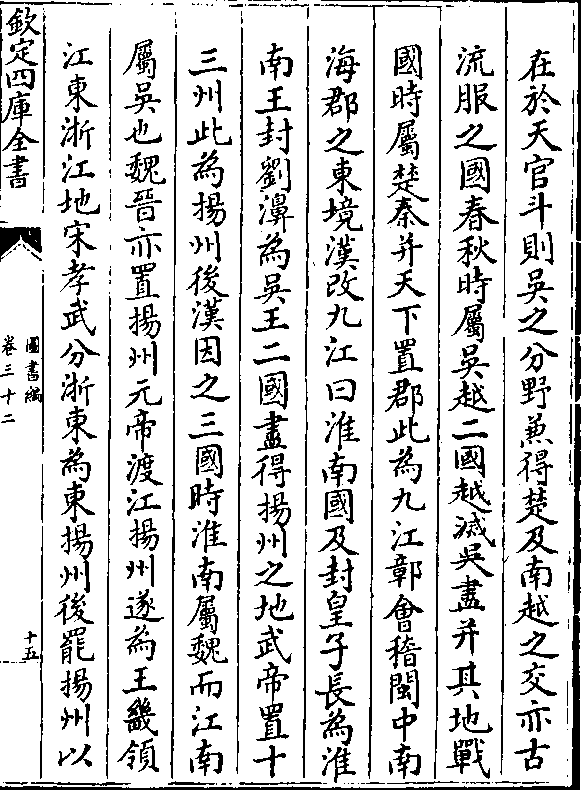 在於天官斗則吳之分野兼得楚及南越之交亦古
流服之國春秋時屬吳越二國越滅吳盡并其地戰
國時屬楚秦并天下置郡此為九江鄣會稽閩中南
海郡之東境漢改九江曰淮南國及封皇子長為淮
南王封劉濞為吳王二國盡得揚州之地武帝置十
三州此為揚州後漢因之三國時淮南屬魏而江南
屬吳也魏晉亦置揚州元帝渡江揚州遂為王畿領
江東浙江地宋孝武分浙東為東揚州後罷揚州以
欽定四庫全書
圖書編
卷三十二
十五